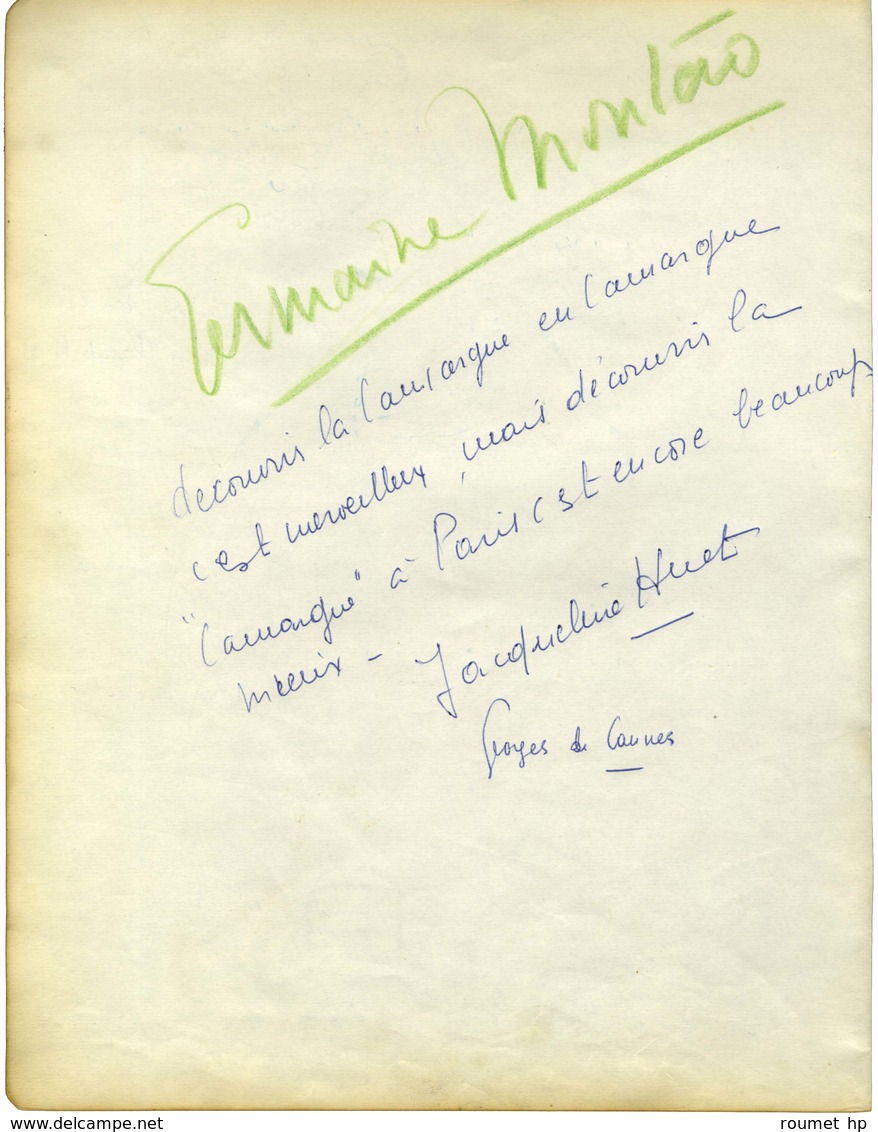 Germaine Montéro
decouvrir la Camargue en Camargue
c'est merveilleux, mais découvrir la
"Camargue" à Paris c'est encore beaucoup
mieux -
Jacqueline Huet
Georges de Cannes
www.delcampe.net
roumet hp